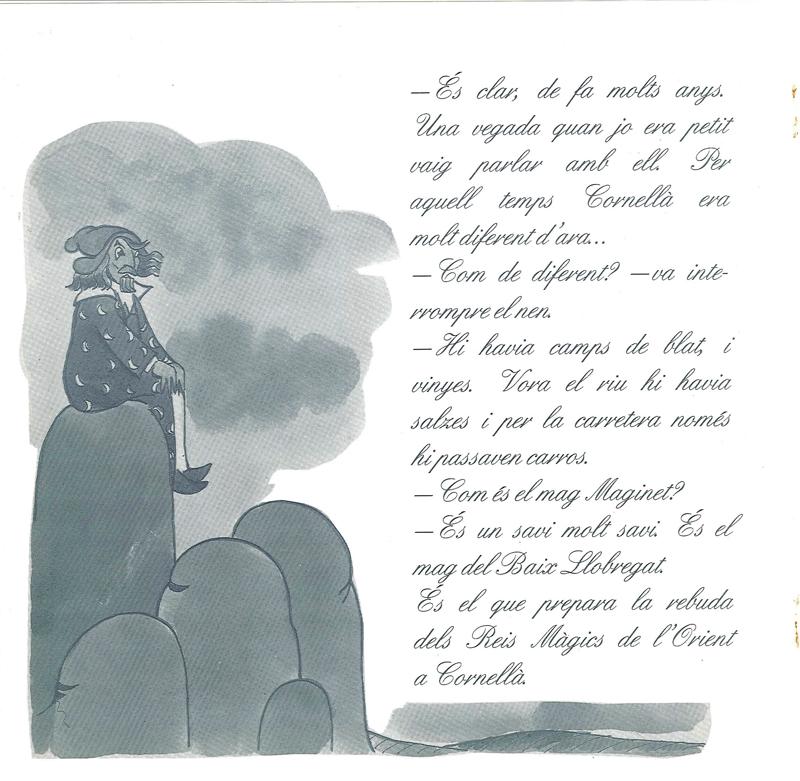 —És clar, de fa molts anys.
Una vegada quan jo era petit
vaig parlar amb ell. Per
aquell temps Cornellà era
molt diferent d'ara...
—Com de diferent? —va inte-
rrompre el nen.
—Hi havia camps de blat, i
vinyes. Vora el riu hi havia
salzes i per la carretera només
hi passaven carros.
—Com és el mag Maginet?
—És un savi molt savi. És el
mag del Baix Llobregat.
És el que prepara la rebuda
dels Reis Màgics de l'Orient
a Cornellà.